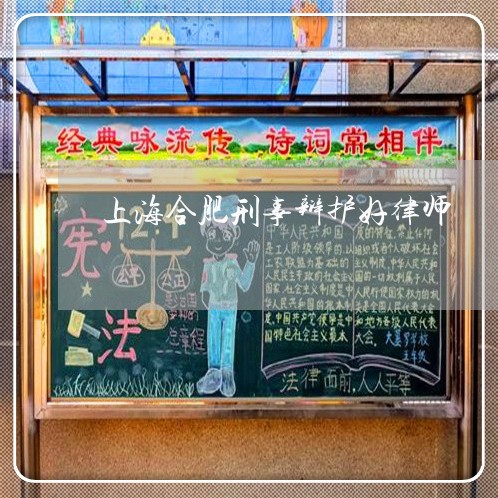 经典咏流传 诗词常相伴
上海合肥刑事辩护好律师
宪法
12·4
公平 公正
总章程
中华人民共和国
是工人阶级领导的,以
工农联盟为基础的
人民民主专政的社会主义
国家。社会主义制度是中
华人民共和国的根本制
度。中国共产党领导是中
国特色社会主义最本
质的特征。禁止任何
组织或者个人破坏社会
主义制度。中华人民共和
国的一切权利属于人民。
人民行使国家权力的机
关是全国人民代表大会
和地方各级人民代表
大会。
五年级
法律面前,人人平等